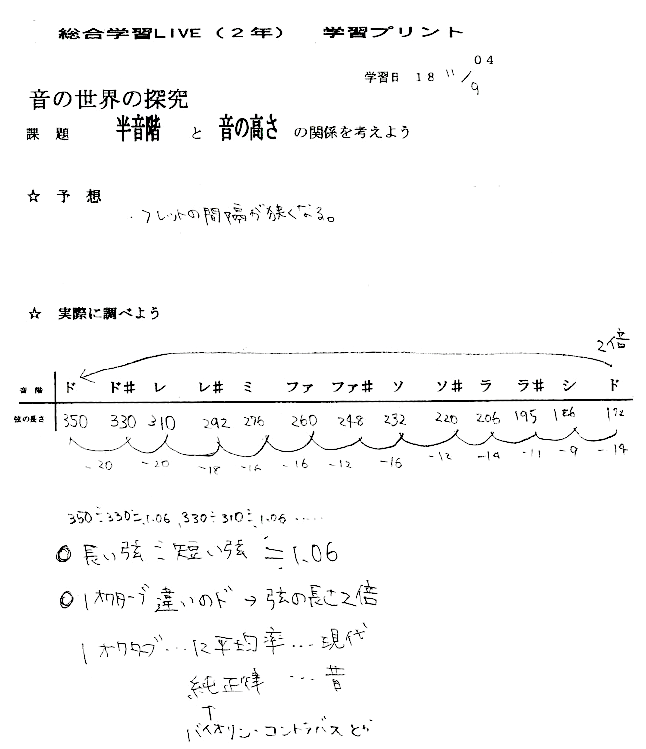 総合学習LIVE（２年） 学習プリント
学習日 １８ 11/9 ０４
音の世界の探究
課 題 半音階 と 音の高さ の関係を考えよう
☆ 予 想
・フレットの間隔が狭くなる。
☆ 実際に調べよう
2倍
音階 ド ド# レ レ# ミ ファ ファ# ソ ソ# ラ ラ# シ ド
弦の長さ 350 330 310 292 276 260 248 232 220 206 195 186 172
-20 -20 -18 -16 -16 -12 -16 -12 -14 -11 -9 -14
350÷330≒1.06, 330÷310≒1.06 ……
○ 長い弦÷短い弦≒1.06
○ 1オクターブ違いのド→弦の長さ2倍
1オクタブ…12平均率…現代
純正律 …昔
↑
バイオリン・コントラバスとか